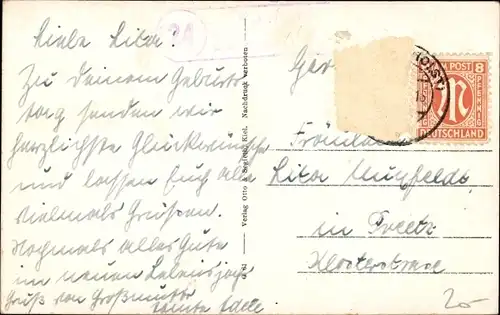 Liebe Lisa!
Zu Deinem Geburts
tag senden wir
herzlichste Glückwünsche
und lassen Euch alle
vielmals Grüßen.
Nochmals alles Gute
im neuen Lebensjahr
Gruß von Großmutter
Tante Adele
24
Verlag Otto Kiel. Nachdruck verboten
(OLST)
M POST 8
PFENNIG
DEUTSCHLAND
Fräulein
Lisa
in Preetz
Klosterstrasse
20